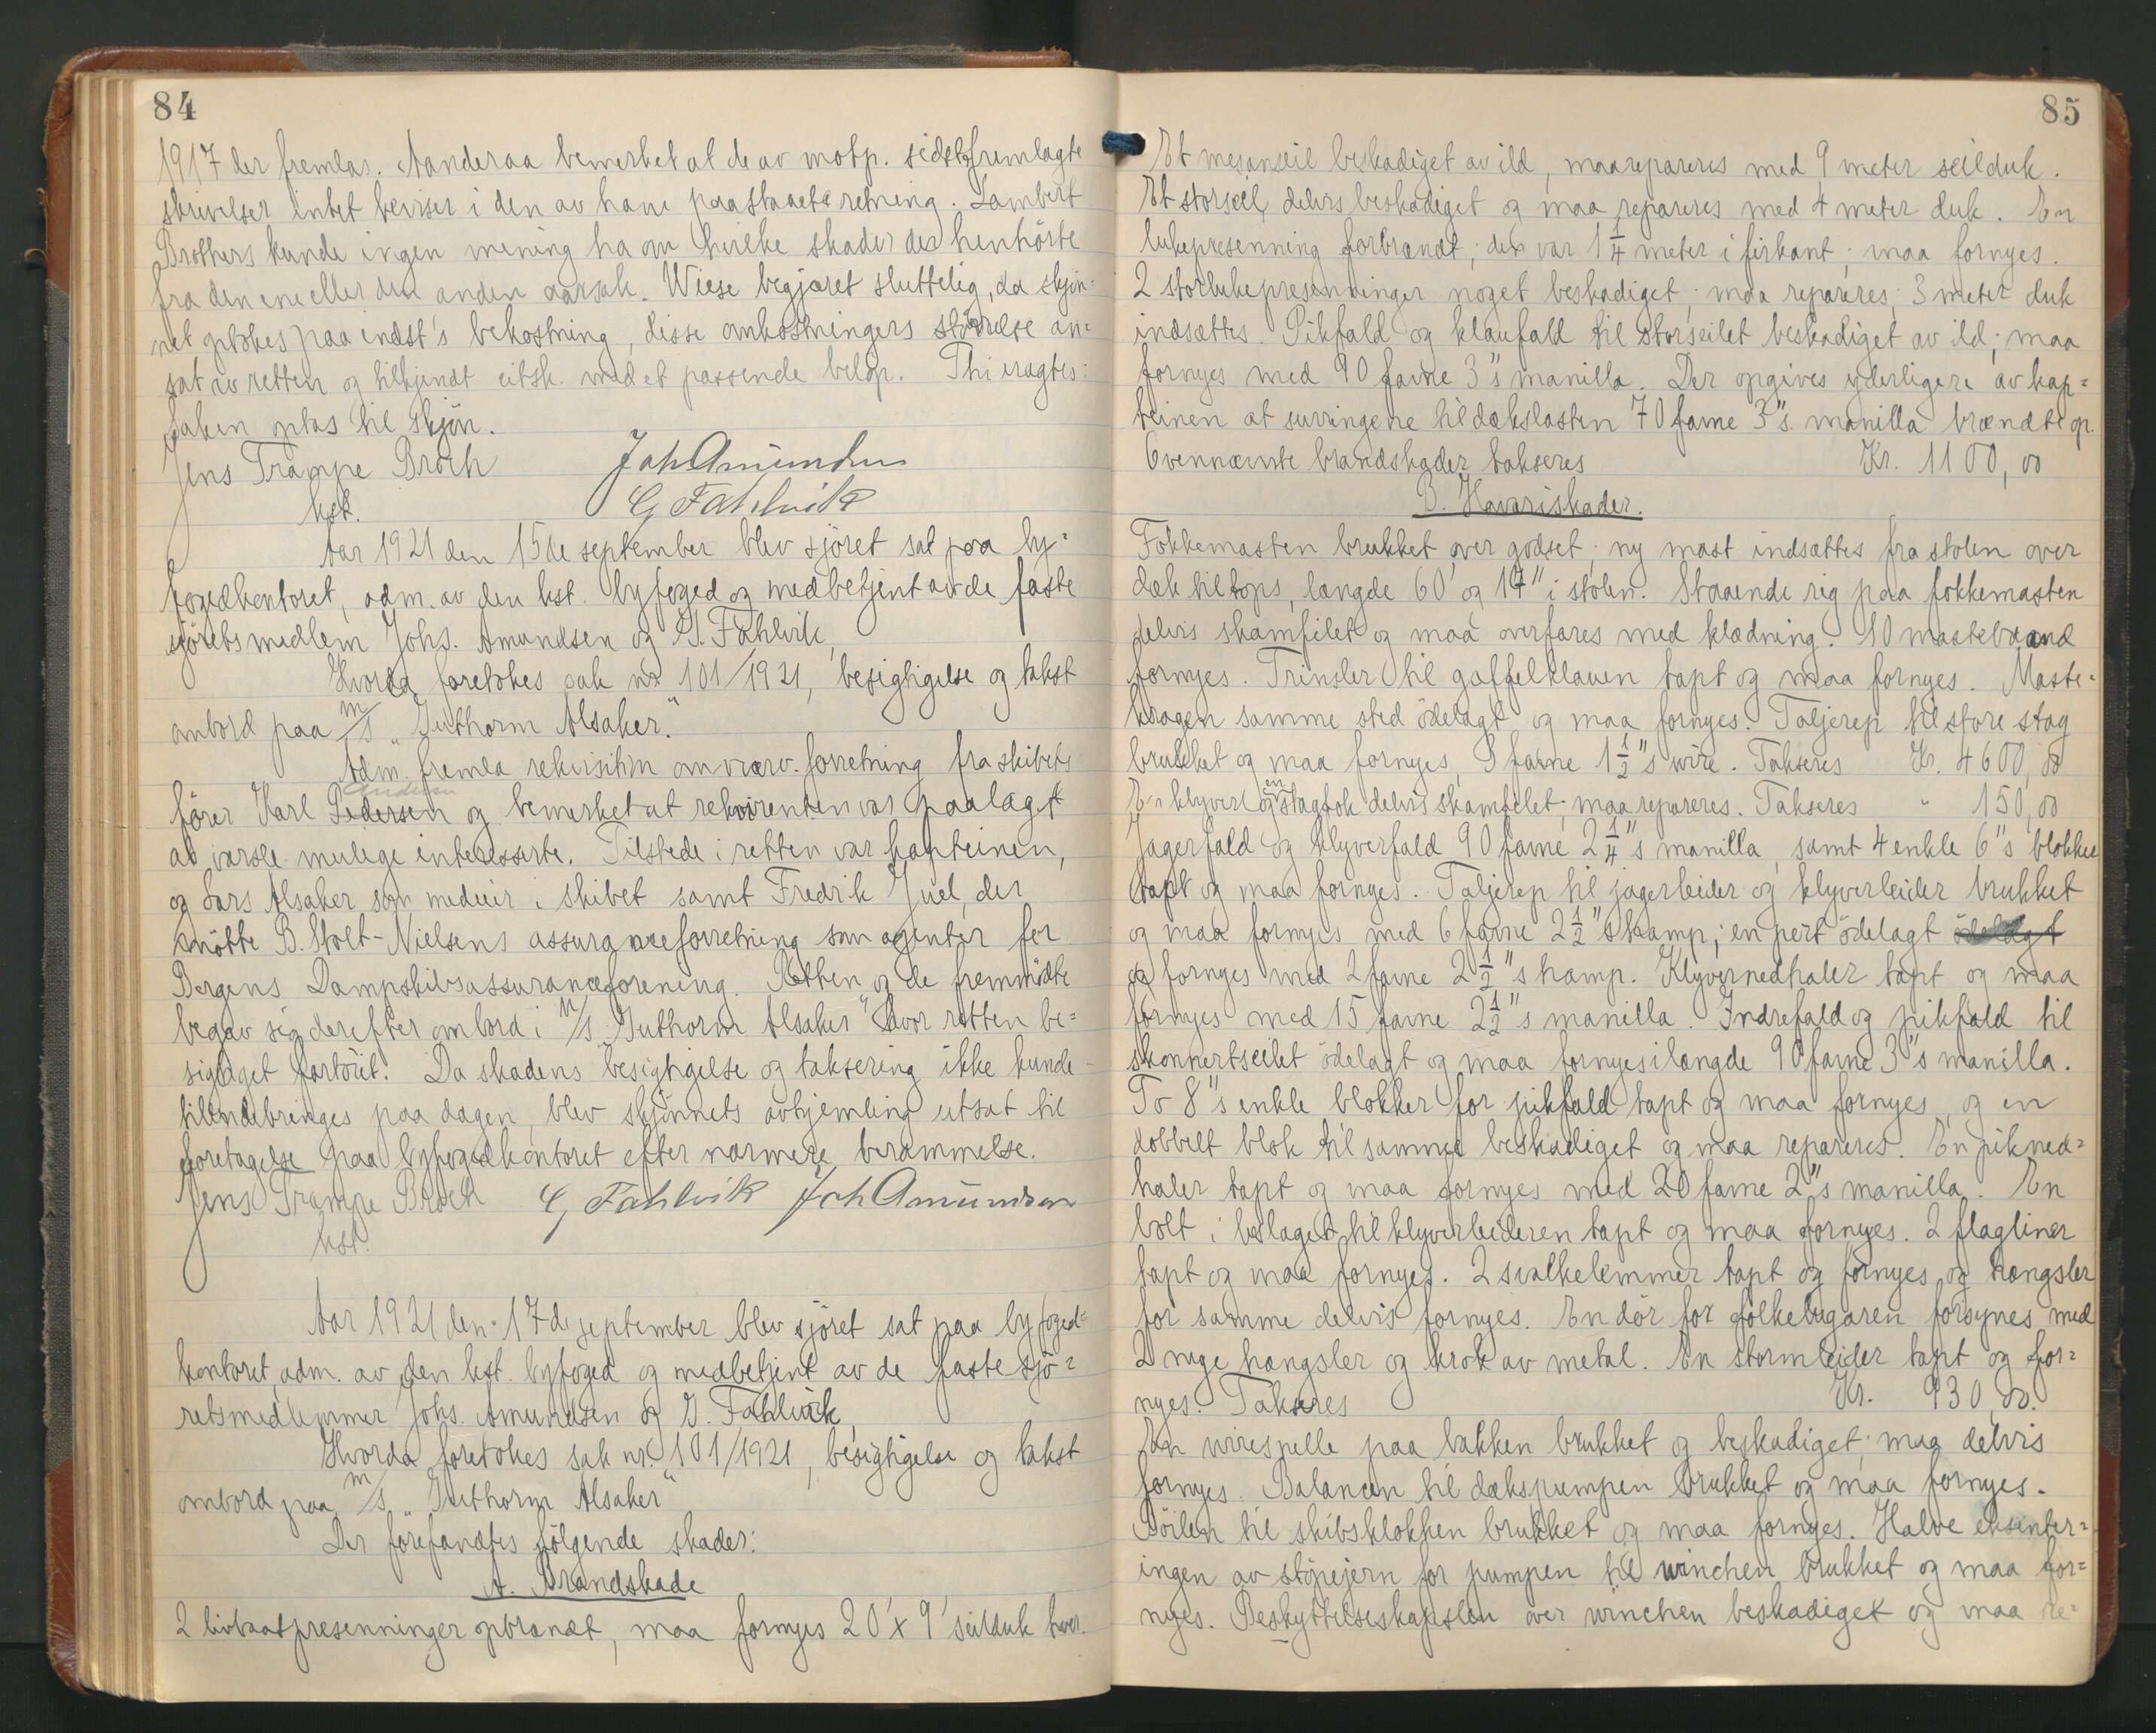 84
1917 der fremlas. Aanderaa bemerket at de av motp. sidst fremlagte
skrivelser intet beviser i den av ham paastaaete retning. Lambert
Brothers kunde ingen mening ha om hvilke skader der henhörte
fra den ene eller den anden aarsak. Wiese begjæret sluttelig, da skjön-
net optokes paa indst's bekostning, disse omkostningers störrelse an-
sat av retten og tilkjendt citsk. med et passende belöp. Thi eragtes:
Saken optas til skjön.
Jens Trampe Broch Joh Amundsen
kst. G Fahlvik
Aar 1921 den 15de september blev sjöret sat paa by-
fogedkontoret, adm. av den kst. byfoged og medbetjent av de faste
sjöretsmedlem Johs. Amundsen og G. Fahlvik,
Hvorda foretokes sak nr 101/1921, besigtigelse og takst
ombord paa m/s "Guthorm Alsaker."
Adm. fremla rekvisition om værv. forretning fra skibets
Andersen
förer Karl Pedersen og bemerket at rekvirenten var paalagt
at varsle mulige interesserte. Tilstede i retten var kapteinen,
og Lars Alsaker som medeier i skibet samt Fredrik Juel, der
mötte B. Stolt-Nielsens assuranceforretning som agenter for
Bergens Dampskibsassuranceforening. Retten og de fremmödte
begav sig derefter ombord i M/S "Guthorm Alsaker" hvor retten be-
sigtiget fartöiet. Da skadens besigtigelse og taksering ikke kunde
tilendebringes paa dagen, blev skjönnets avhjemling utsat til
foretagelse paa byfogedkontoret efter nærmere berammelse.
Jens Trampe Broch G Fahlvik Joh Amundsen
kst.
Aar 1921 den 17de september blev sjöret sat paa byfoged-
kontoret, adm. av den kst. byfoged og medbetjent av de faste sjö-
retsmedlemmer Johs. Amundsen og G. Fahlvik,
Hvorda foretokes sak nr. 101/1921, besigtigelse og takst
ombord paa m/s "Guthorm Alsaker"
Der forefandtes fölgende skader:
A. Brandskade
2 livbaatpresenninger opbrændt, maa fornyes 20' x 9' seilduk hver.
85
Et mesanseil beskadiget av ild, maa repareres med 9 meter seilduk.
Et storseil delvis beskadiget og maa repareres med 4 meter duk. En
lukepresenning forbrændt; den var 1 1/4 meter i firkant; maa fornyes.
2 storlukepresenninger noget beskadiget; maa repareres; 3 meter duk
indsættes. Pikfald og klaufald til storseilet beskadiget av ild; maa
fornyes med 90 favne 3"s manilla. Der opgives yderligere av kap-
teinen at surringene til dækslasten 70 favne 3"s. manilla brændte op.
Ovennævnte brandskader takseres Kr. 1100,00
B. Havariskader.
Fokkemasten brukket over godset; ny mast indsættes fra stolen over
dæk til tops, længde 60' og 17" i stolen. Staaende rig paa fokkemasten
delvis skamfilet og maa overfares med klædning. 10 mastebaand
fornyes. Trinsler til gaffelklauen tapt og maa fornyes. Maste-
kragen samme sted ödelagt og maa fornyes. Taljerep til store stag
brukket og maa fornyes, 9 favne 1 1/2"s wire. Takseres Kr. 4600,00
En klyver og en stagfok delvis skamfilet; maa repareres. Takseres " 150,00
Jagerfald og klyverfald 90 favne 2 1/4"s manilla, samt 4 enkle 6"s blokker
tapt og maa fornyes. Taljerep til jagerleider og klyverleider brukket
og maa fornyes med 6 favne 2 1/2"s hamp; en pert ödelagt ödelagt
og fornyes med 2 favne 2 1/2"s hamp. Klyvernedhaler tapt og maa
fornyes med 15 favne 2 1/2"s manilla. Indrefald og pikfald til
skonnertseilet ödelagt og maa fornyes i længde 90 favne 3"s manilla.
To 8"s enkle blokker for pikfald tapt og maa fornyes, og en
dobbelt blok til samme beskadiget og maa repareres. En pikned-
haler tapt og maa fornyes med 20 favne 2"s manilla. En
bolt i beslaget til klyverleideren tapt og maa fornyes. 2 flagliner
tapt og maa fornyes. 2 svalkelemmer tapt og fornyes og hængsler
for samme delvis fornyes. En dör for folkelugaren forsynes med
2 nye hængsler og krok av metal. En stormleider tapt og for-
nyes. Takseres Kr. 930,00.
En wirespelle paa bakken brukket og beskadiget; maa delvis
fornyes. Balancen til dækspumpen brukket og maa fornyes.
Böilen til skibsklokken brukket og maa fornyes. Halve eksenter-
ingen av stöpejern for pumpen til winchen brukket og maa for-
nyes. Beskyttelseskapslen over winchen beskadiget og maa re-